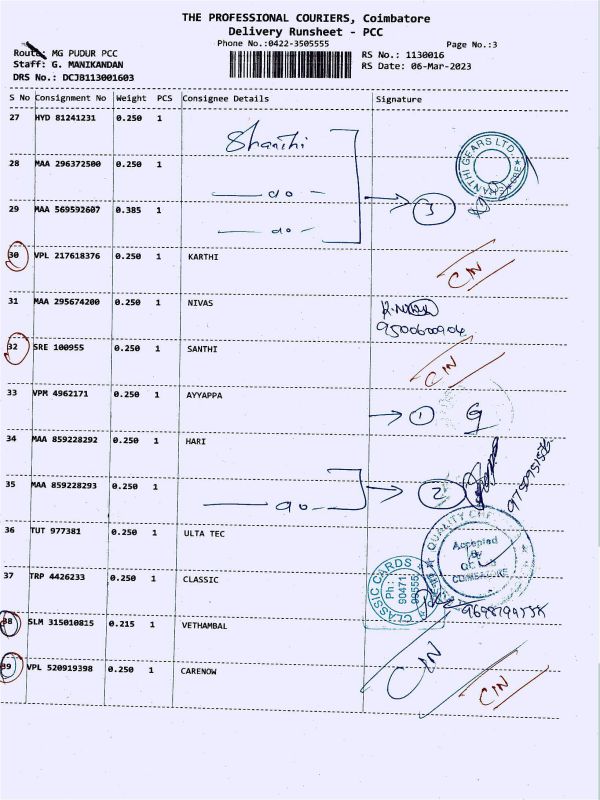 THE PROFESSIONAL COURIERS, Coimbatore
Delivery Runsheet - PCC
Phone No.:0422-3505555
Page No.:3
Route: MG PUDUR PCC
RS No.: 1130016
Staff: G. MANIKANDAN
RS Date: 06-Mar-2023
DRS No.: DCJB113001603
S No Consignment No Weight PCS Consignee Details Signature
27 HYD 81241231 0.250 1 Shanthi
SHANTHI GEARS LTD.
28 MAA 296372500 0.250 1 do
3
29 MAA 569592607 0.385 1 do
30 VPL 217618376 0.250 1 KARTHI CIN
31 MAA 295674200 0.250 1 NIVAS
32 SRE 100955 0.250 1 SANTHI CIN
33 VPM 4962171 0.250 1 AYYAPPA 1
34 MAA 859228292 0.250 1 HARI
35 MAA 859228293 0.250 1 do 2
36 TUT 977381 0.250 1 ULTA TEC
Accepted
By
COIMBATORE
37 TRP 4426233 0.250 1 CLASSIC
CLASSIC CARDS
Ph:
90471
38 SLM 315010815 0.215 1 VETHAMBAL CIN
39 VPL 520919398 0.250 1 CARENOW CIN